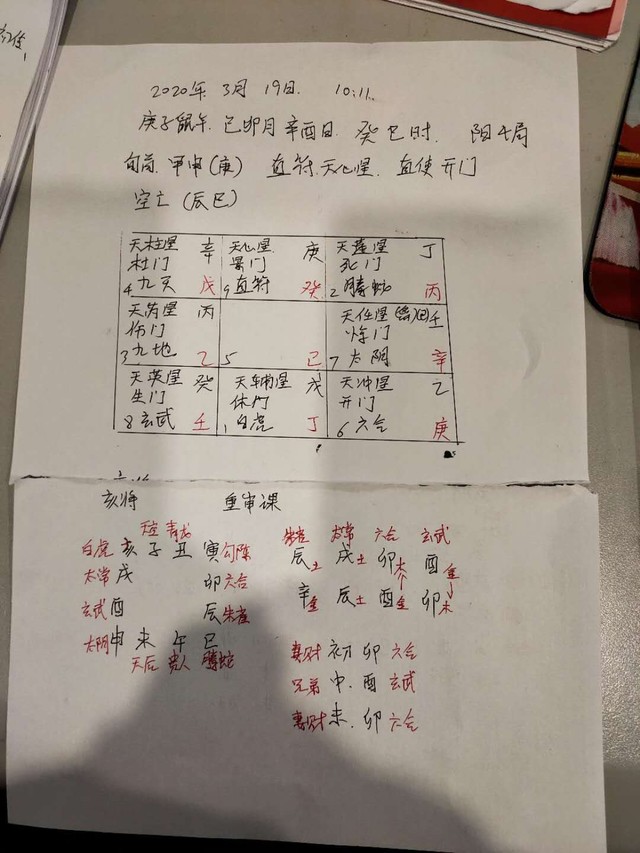 2020年 3月 19日 10:11
庚子鼠年 己卯月 辛酉日 癸巳时 阳4局
旬首 甲申(庚) 直符 天心星 直使开门
空亡 (辰巳)
天柱星 辛
杜门
4 九天 戊
天心星 庚
景门
9 直符 癸
天蓬星 丁
死门
2 腾蛇 丙
天芮星 丙
伤门
3 九地 乙
5 己
天任星 壬
惊门
7 太阴 辛
天英星 癸
生门
8 玄武 壬
天辅星 戊
休门
1 白虎 丁
天冲星 乙
开门
6 六合 庚
亥将 重审课
天空 青龙
白虎 亥 子 丑 寅 勾陈
太常 戌 卯 六合
玄武 酉 辰 朱雀
太阴 申 未 午 巳
天后 贵人 腾蛇
朱雀 太常 六合 玄武
辰土 戌土 卯木 酉金
辛金 辰土 酉金 卯木
妻财 初 卯 六合
兄弟 中 酉 玄武
妻财 末 卯 六合